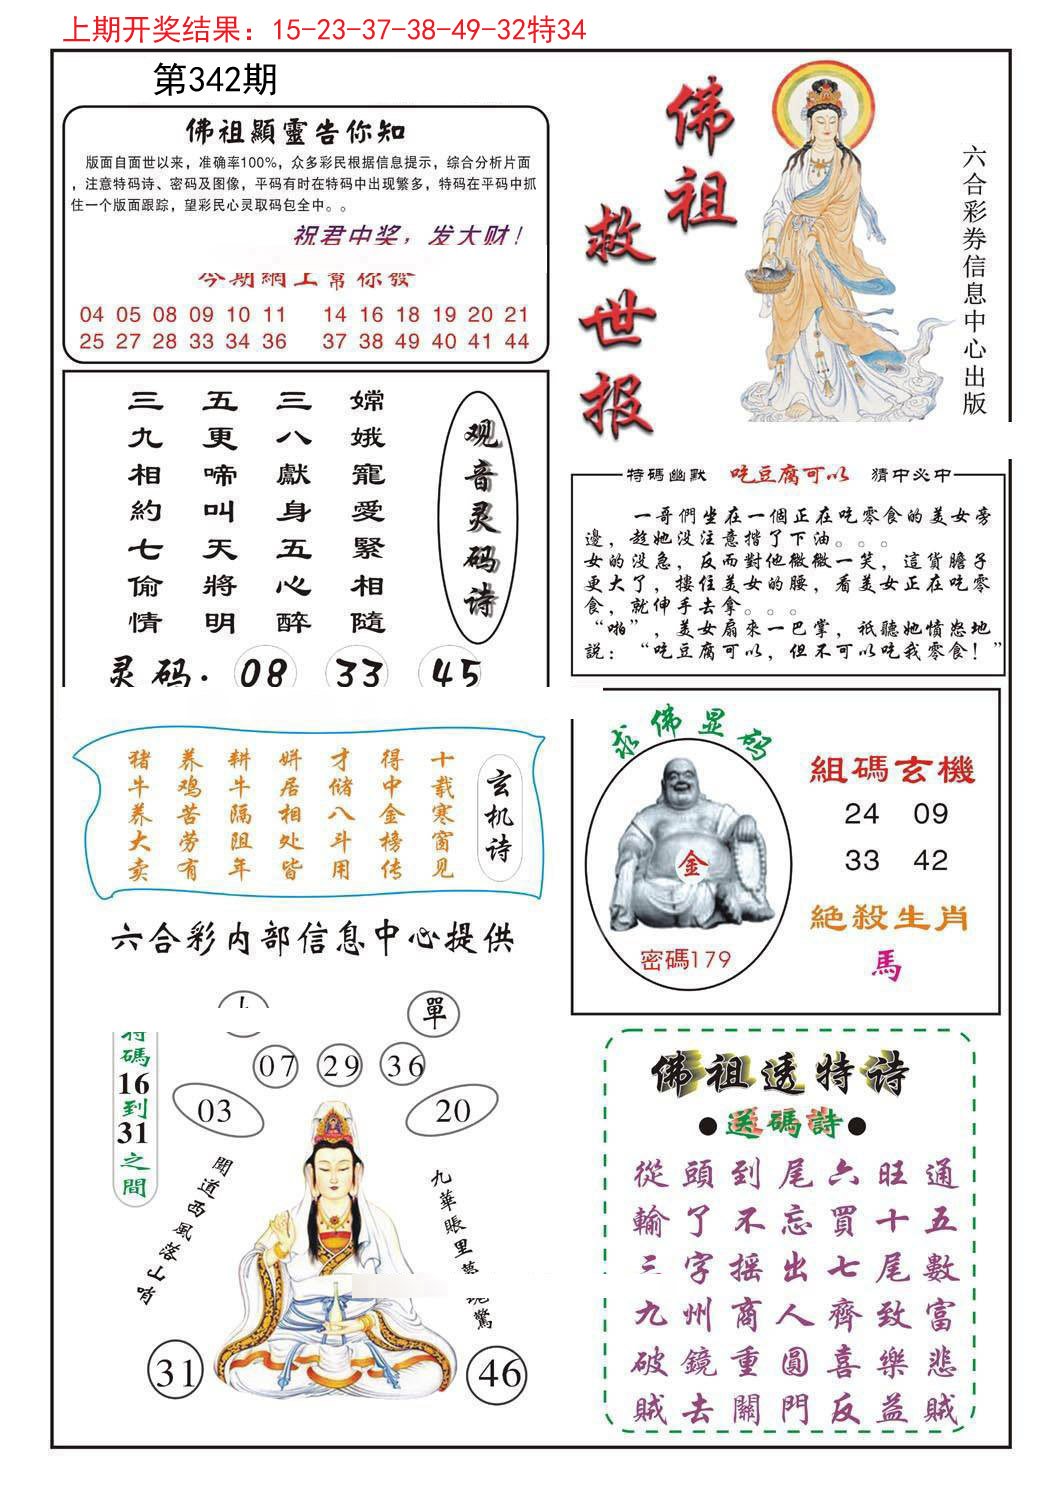 上期开奖结果：15-23-37-38-49-32特34
第342期
佛祖顯靈告你知
版面自面世以来，准确率100%，众多彩民根据信息提示，综合分析片面
，注意特码诗、密码及图像，平码有时在特码中出现繁多，特码在平码中抓
住一个版面跟踪，望彩民心灵取码包全中。。
祝君中奖，发大财！
今期網上幫你發
04 05 08 09 10 11 14 16 18 19 20 21
25 27 28 33 34 36 37 38 49 40 41 44
佛祖
救世报
六合彩券信息中心出版
观音灵码诗
嫦娥寵愛緊相隨
三八獻身五心醉
五更啼叫天將明
三九相約七偷情
灵码：08 33 45
特碼幽默 吃豆腐可以 猜中必中
一哥們坐在一個正在吃零食的美女旁
邊，趁她没注意揩了下油。。。
女的没急，反而對他微微一笑，這貨膽子
更大了，摟住美女的腰，看美女正在吃零
食，就伸手去拿。。。
“啪”，美女扇來一巴掌，衹聽她憤怒地
説：“吃豆腐可以，但不可以吃我零食！”
玄机诗
十载寒窗见
得中金榜传
才储八斗用
姘居相处皆
耕牛隔阻年
养鸡苦劳有
猪牛养大卖
六合彩内部信息中心提供
求佛显码
金
密碼179
組碼玄機
24 09
33 42
絶殺生肖
馬
單
07 29 36
03 20
特碼16到31之間
聞道西風落山哨
九華賬里夢魂驚
31 46
佛祖透特诗
●送碼詩●
從頭到尾六旺通
輸了不忘買十五
三字摇出七尾數
九州商人齊致富
破鏡重圓喜樂悲
賊去關門反益賊